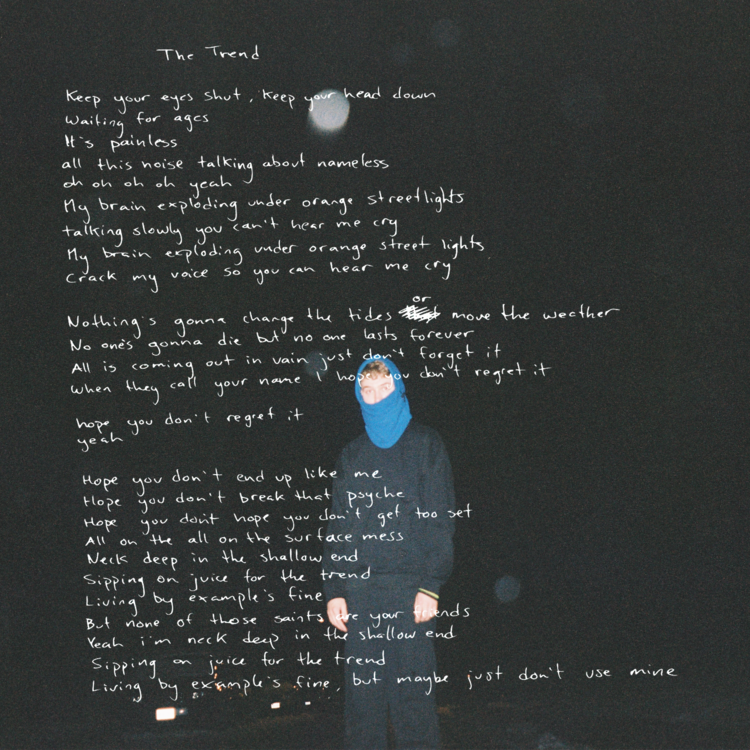 The Trend
Keep your eyes shut, keep your head down
Waiting for ages
It's painless
all this noise talking about nameless
oh oh oh oh yeah
My brain exploding under orange streetlights
talking slowly you can't hear me cry
My brain exploding under orange street lights
Crack my voice so you can hear me cry
Nothing's gonna change the tides or move the weather
No one's gonna die but no one lasts forever
All is coming out in vain just don't forget it
When they call your name I hope you don't regret it
hope you don't regret it
yeah
Hope you don't end up like me
Hope you don't break that psyche
Hope you don't hope you don't get too set
All on the all on the surface mess
Neck deep in the shallow end
Sipping on juice for the trend
Living by example's fine
But none of those saints are your friends
Yeah i'm neck deep in the shallow end
Sipping on juice for the trend
Living by example's fine, but maybe just don't use mine